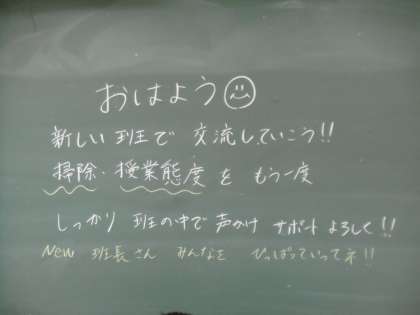 おはよう☺
新しい班で 交流していこう!!
掃除・授業態度を もう一度
しっかり 班の中で 声かけ サポート よろしく!!
New 班長さん みんなを ひっぱっていってネ!!